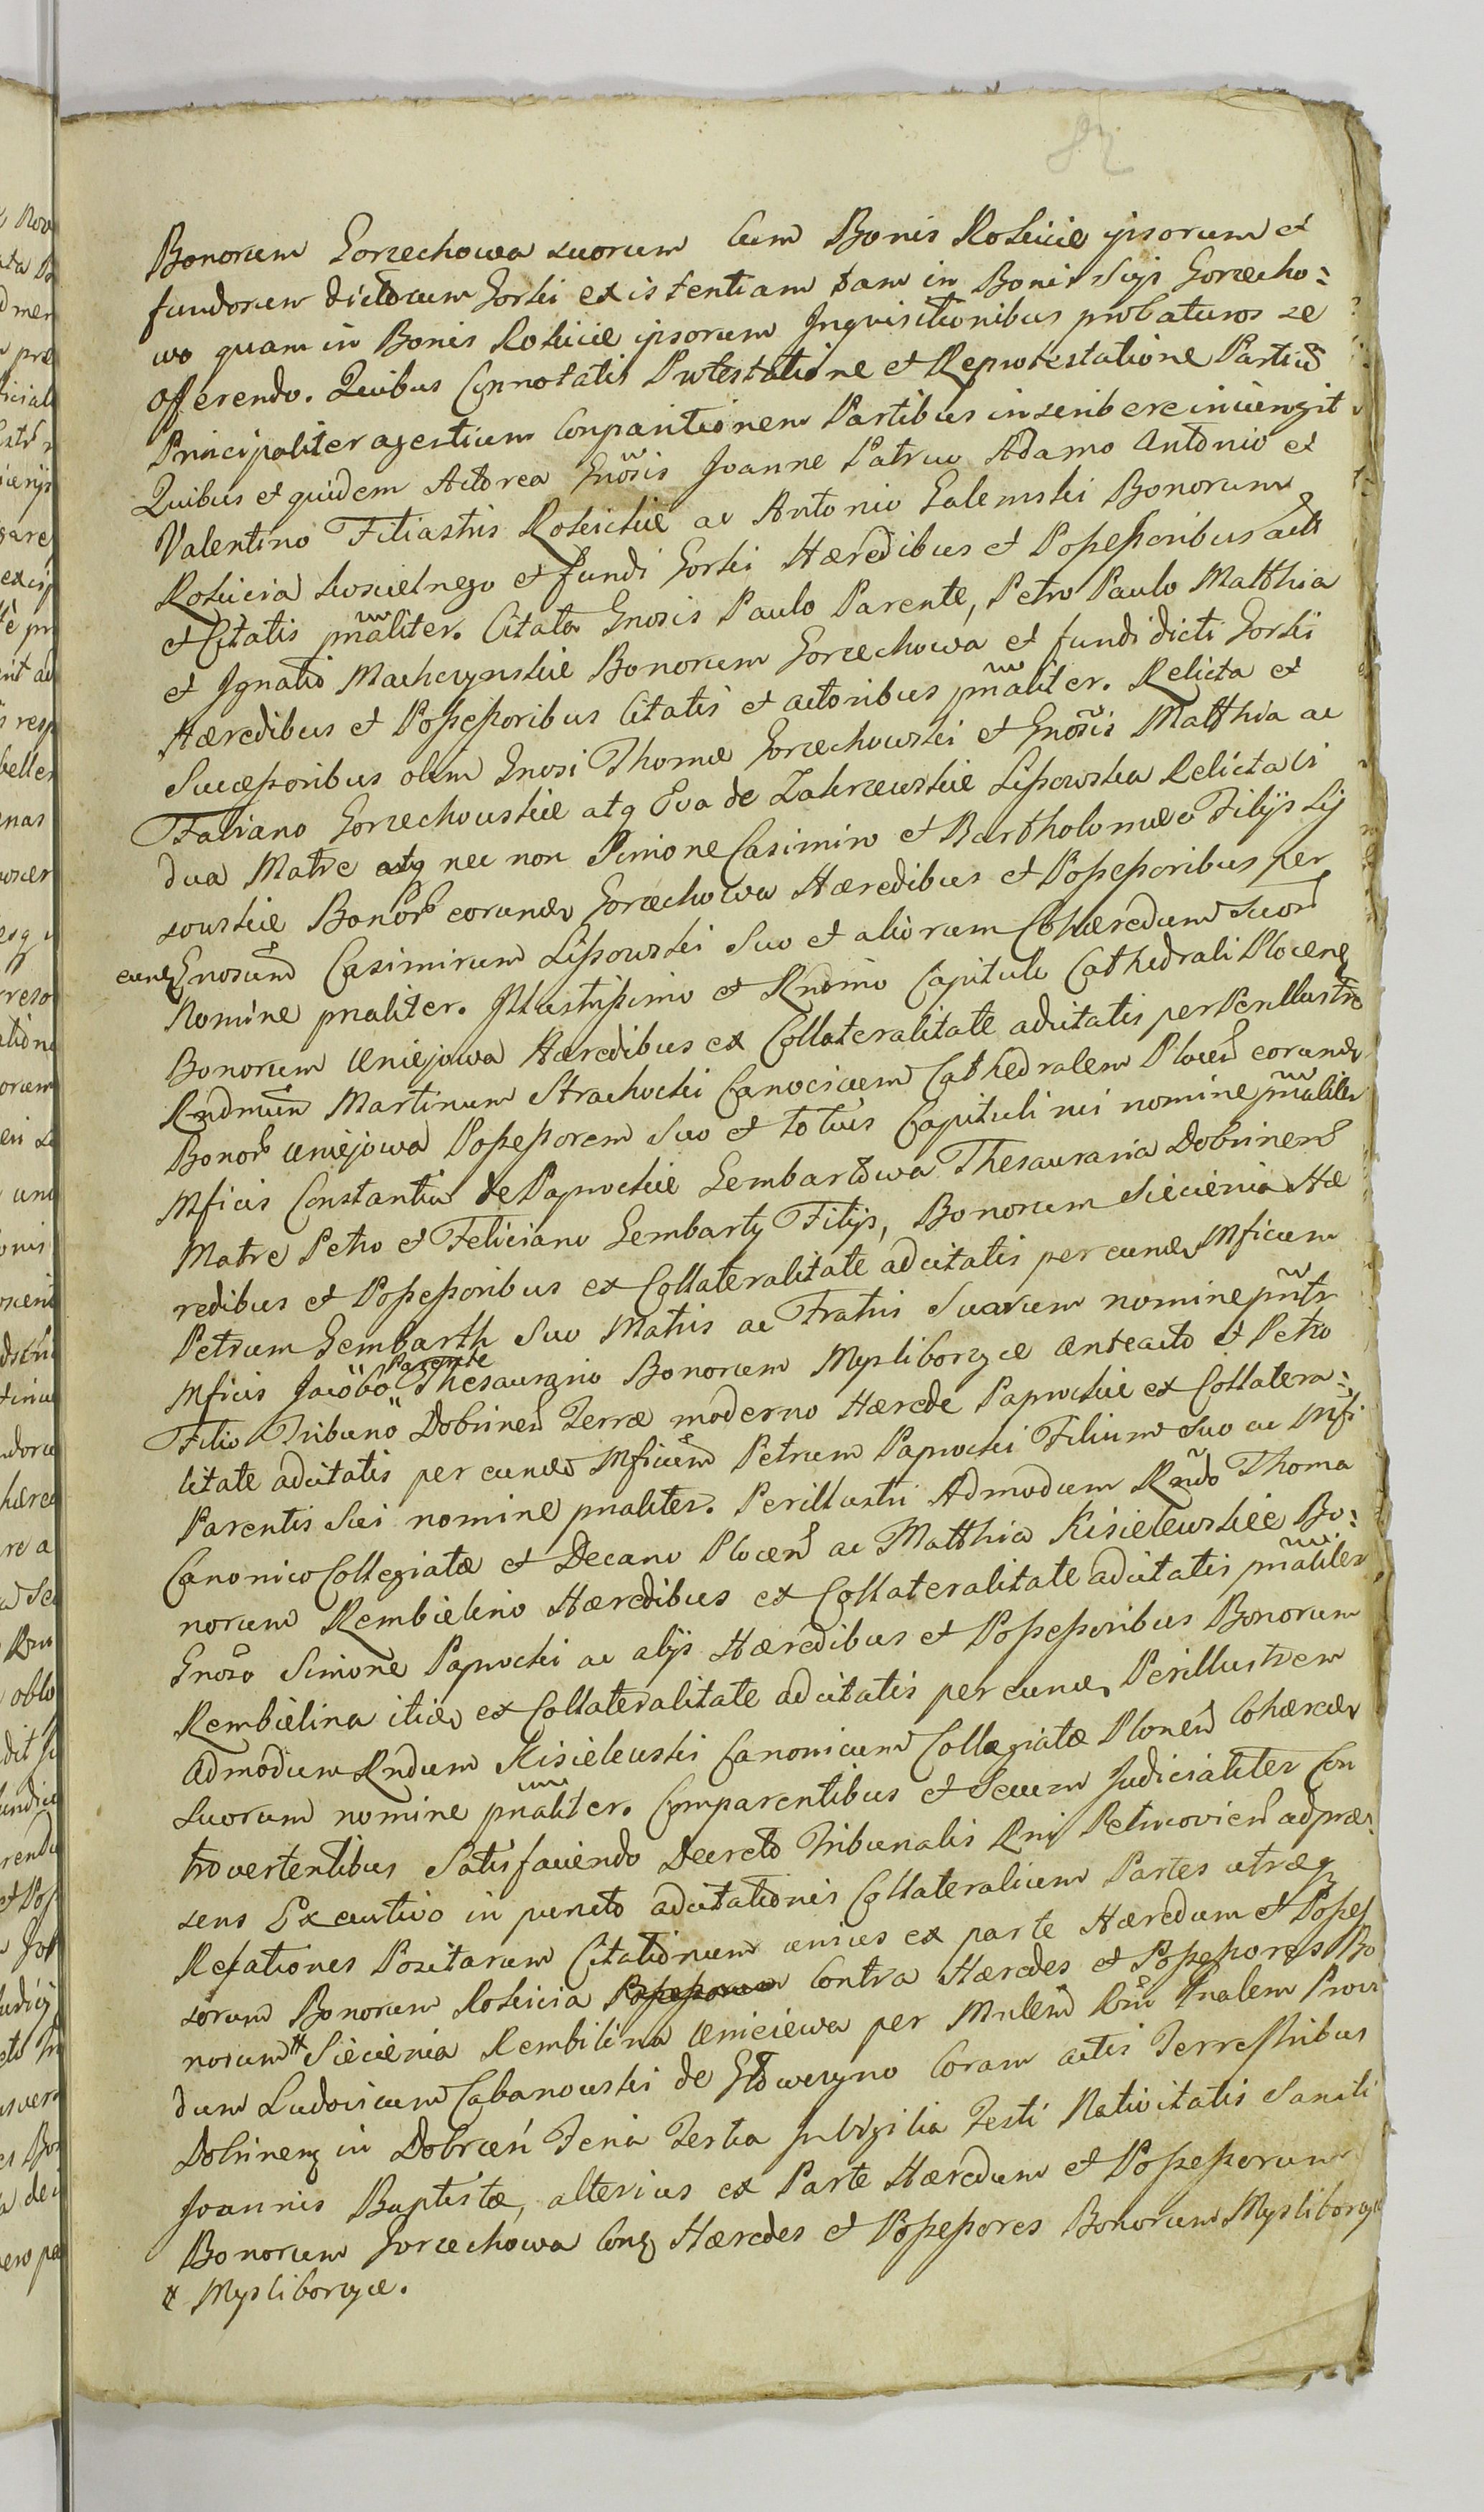 82
Bonorum Gorzechowa suorum cum Bonis Rokicie ipsorum et
fundorum dictorum Gorki existentiam tam in Bonis suijs Gorzecho:
wo quam in Bonis Rokicie ipsorum Inquisitionibus probaturos se
offerendo. Quibus Connotatis Protestatione et Reprotestatione Partiũ
Principaliter agentium Conparitionem Partibus inscribere iniungit
Quibus et quidem Actorea Gnosis Joanne Patruo Adamo Antonio et
Valentino Filiastris Rokickie ac Antonio Galemski Bonorum
Rokicia koscielnego et fundi Gorki Hæredibus et Possessoribus actt
et Citatis pnaliter. Citata Gnosis Paulo Parente, Petro Paulo Matthia
et Ignatio Machczynskie Bonorum Gorzechowa et fundi dicti Gorki
Hæredibus et Possessoribus Citatis et actoribus pnaliter. Relicta et
Successoribus olim Gnosi Thomæ Gorzechowski et Gnosis Matthia ac
Fabiano Gorzechowskie atq Eva de Zakrzewskie Lissowska Relicta Vi
dua Matre atq nec non Simone Casimiro et Bartholomæo Filijs Lis
sowskie Bonor eorund Gorzechowa Hæredibus et Possessoribus per
eund Gnosum Casimirum Lissowski Suo et aliorum Cohæredum suor
Nomine pnaliter. Illustrissimo et Rndmo Capitulo Cathedrali Plocen
Bonorum Uniejowa Hæredibus ex Collateralitate adcitatis per Perillustre
Rndmum Martinum Strachocki Canocicum Cathedralem Plocen eorund
Bonor Uniejowa Possessorem Suo et totius Capituli sui nomine pnaliter
Mficis Constantia de Paprockie Gembartowa Thesauraria Dobrinen
Matre Petro et Feliciano Gembarty Filijs, Bonorum Siecienia Hæ
redibus et Possessoribus ex Collateralitate adcitatis per eund Mficum
Petrum Gembarth Suo Matris ac Fratris Suorum nomine pnltr
Mficis Jacobo Parente Thesaurario Bonorum Mysliborzyce Anteacto et Petro
Filio Tribuno Dobrinen Terræ moderno Hærede Paprockie ex Collatera:
litate adcitatis per eund Mficum Petrum Paprocki Filium Suo ac Mfi
Parentis Sui nomine pnaliter. Perillustri Admodum Rndo Thoma
Canonico Collegiatæ et Decano Plocen ac Matthia Kisielewskie Bo:
norum Rembielino Hæredibus ex Collateralitate adcitatis pnaliter
Gnoso Simone Paprocki ac alijs Hæredibus et Possessoribus Bonorum
Rembielina itid ex Collateralitate adcitatis per eund Perillustrem
Admodum Rndum Kisielewski Canonicum Collegiatæ Plonen Cohæred
suorum nomine pnaliter. Comparentibus et Secum Judicialiter Con
trovertentibus Satisfaciendo Decreto Tribunalis Rni Petricovien adpræ:
sens Executivo in puncto adcitationis Collateralium Partes utræq
Relationes Positarum Citationum unius ex parte Hæredum et Posses
sorum Bonorum Rokicia Possessorum Contra Hæredes et Possessores Bo
norum # Siecienia Rembilina Unieiewa per Mnlem Rni Gnalem Provi
dum Ludovicum Cabanowski de Głowczyno Coram actis Terrestribus
Dobrinen in Dobrzeń Feria Tertia In Vigilia Festi Nativitatis Sancti
Joannis Baptistæ, alterius ex Parte Hæredum et Possessorum
Bonorum Gorzechowa Con Hæredes et Possessores Bonorum Mysliborzyce
# Mysliborzyce.